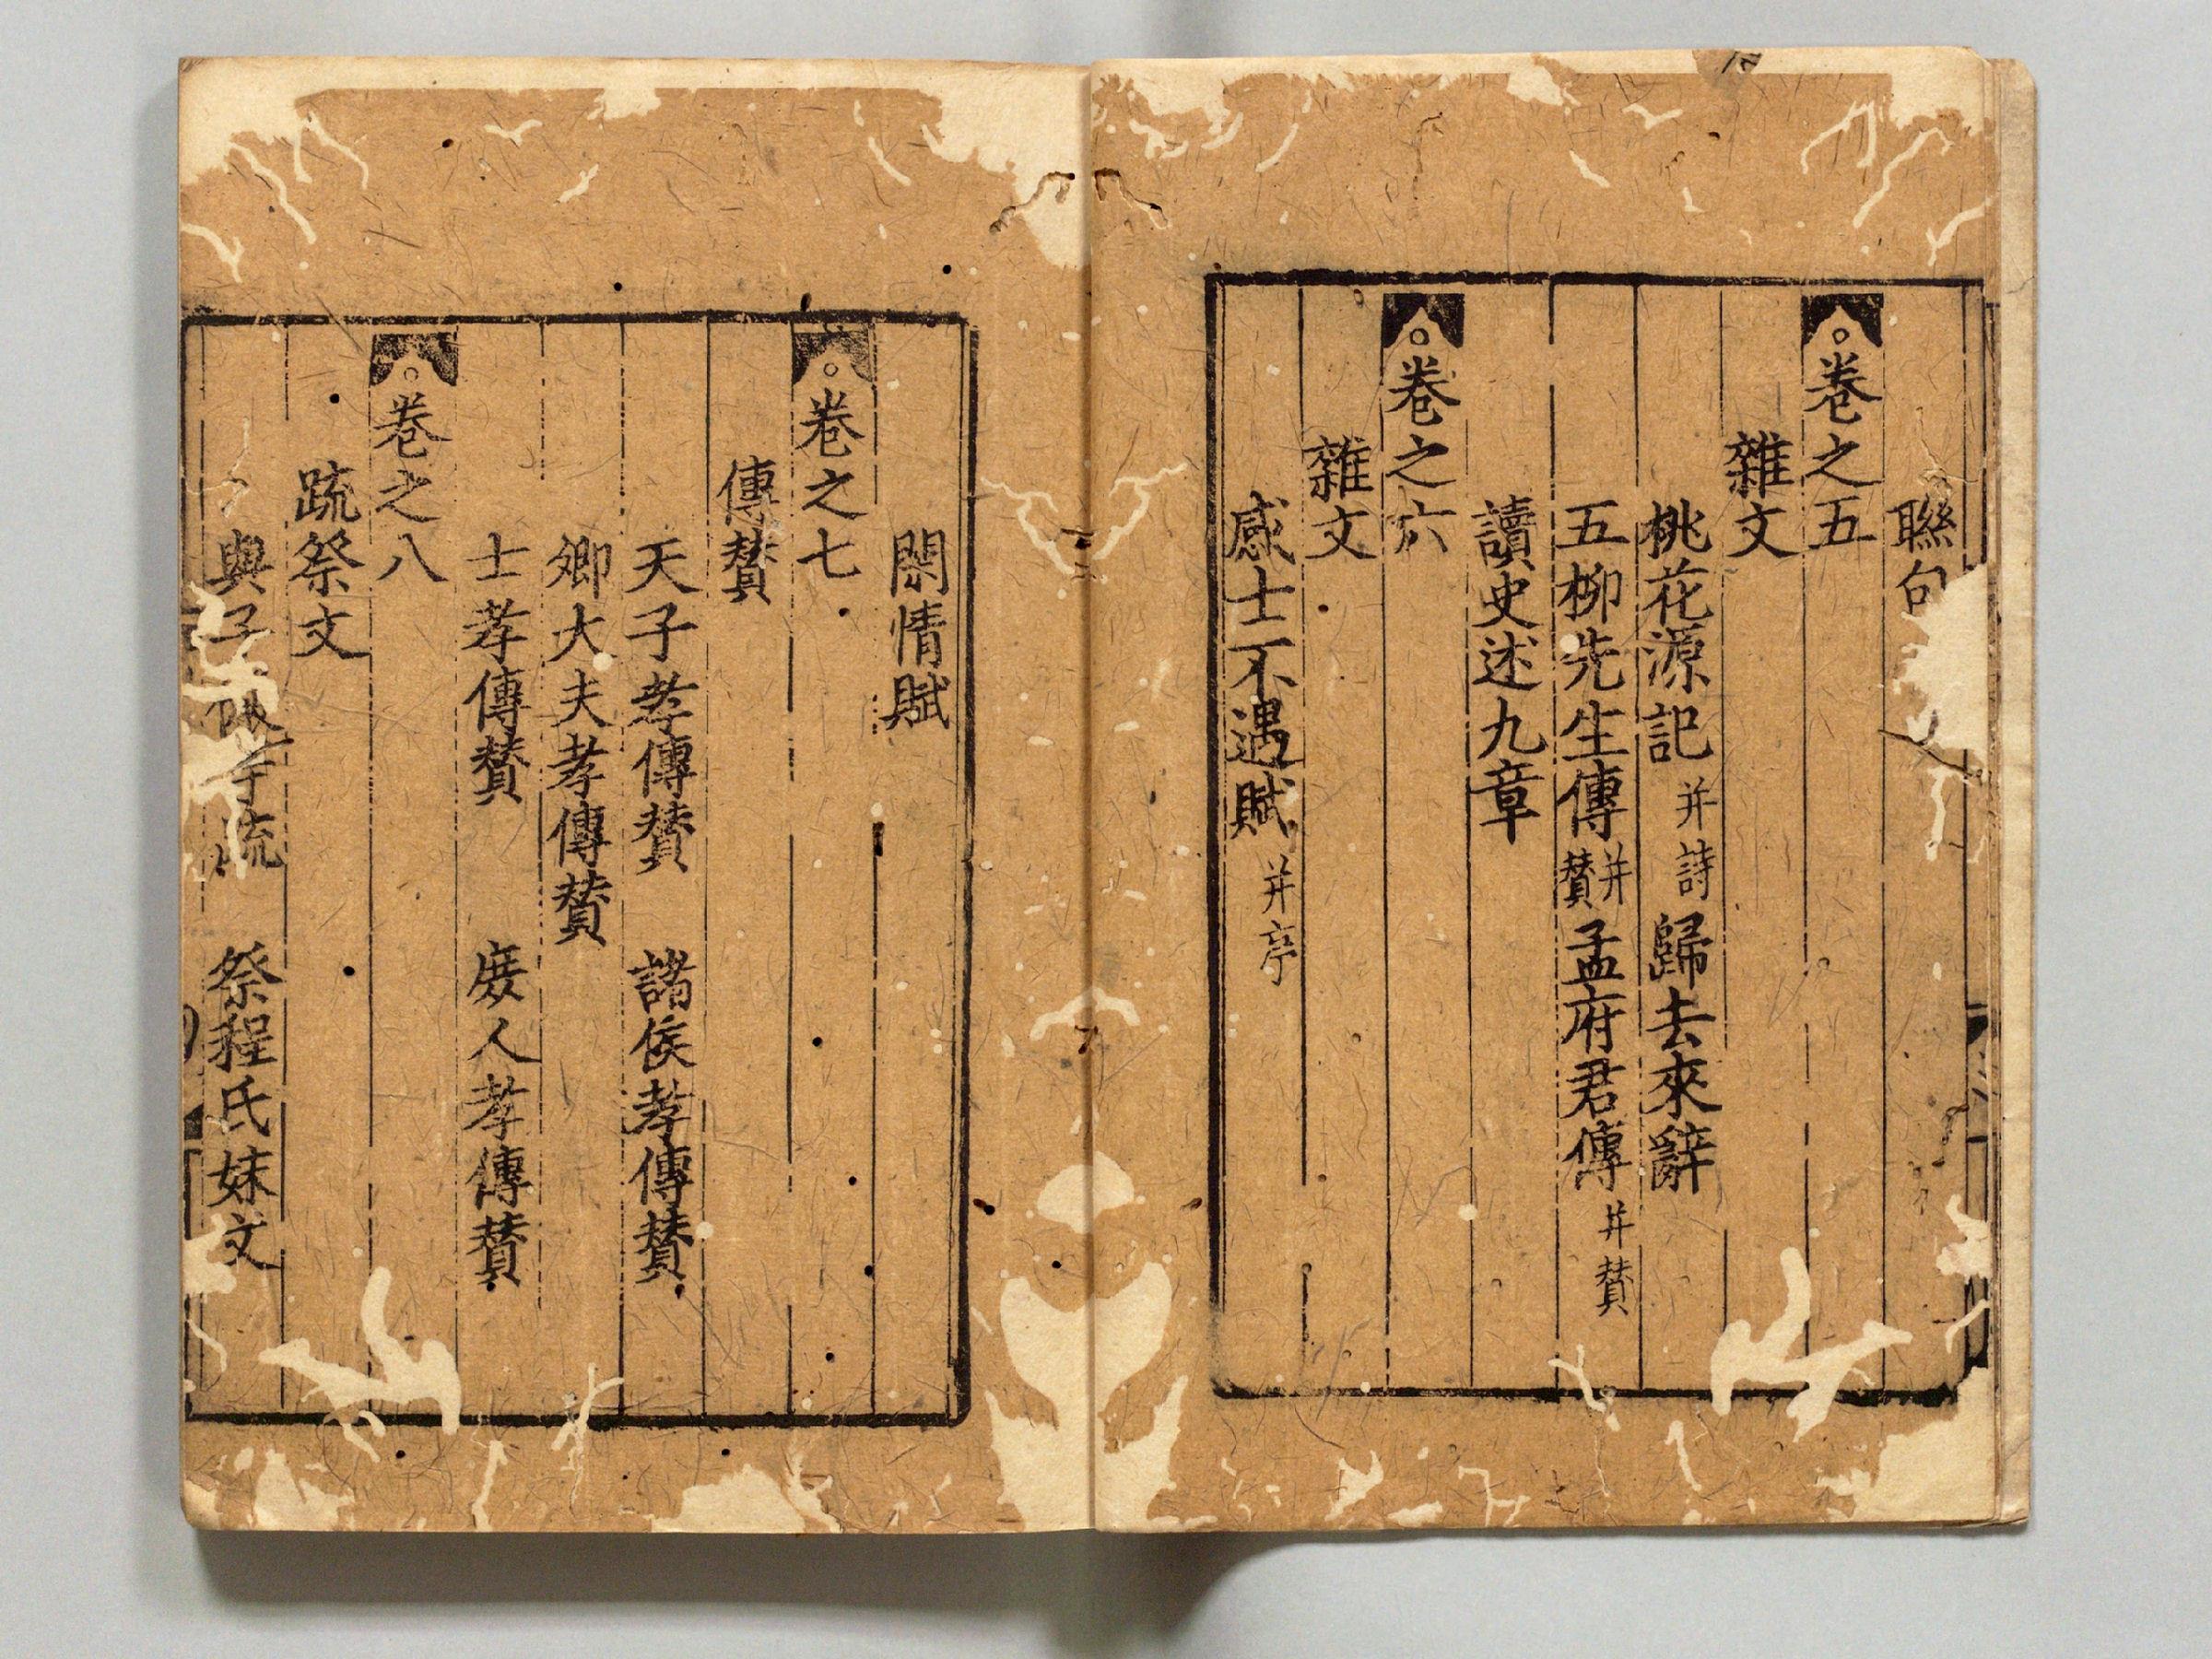 聯句
卷之五
雜文
桃花源記 并詩 歸去來辭
五柳先生傳 并贊 孟府君傳 并贊
讀史述九章
卷之六
雜文
感士不遇賦 并序
閑情賦
卷之七
傳贊
天子孝傳贊 諸侯孝傳贊
卿大夫孝傳贊
士孝傳贊 庶人孝傳贊
卷之八
疏祭文
與子 等疏 祭程氏妹文